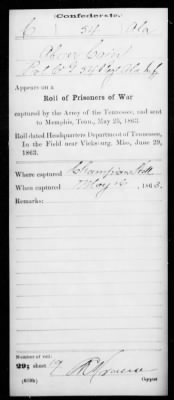 Confederate.
C 54 Ala
Abner Cain
Pvt Co. G, 54 Regt Ala Inf
Appears on a
Roll of Prisoners of War
captured by the Army of the Tennessee, and sent
to Memphis, Tenn., May 25, 1863.
Roll dated Headquarters Department of Tennessee,
In the Field near Vicksburg, Miss, June 29,
1863.
Where captured Champion Hill
When captured May 16, 1863.
Remarks:
Number of roll:
29; sheet 9
(639b) Copyist